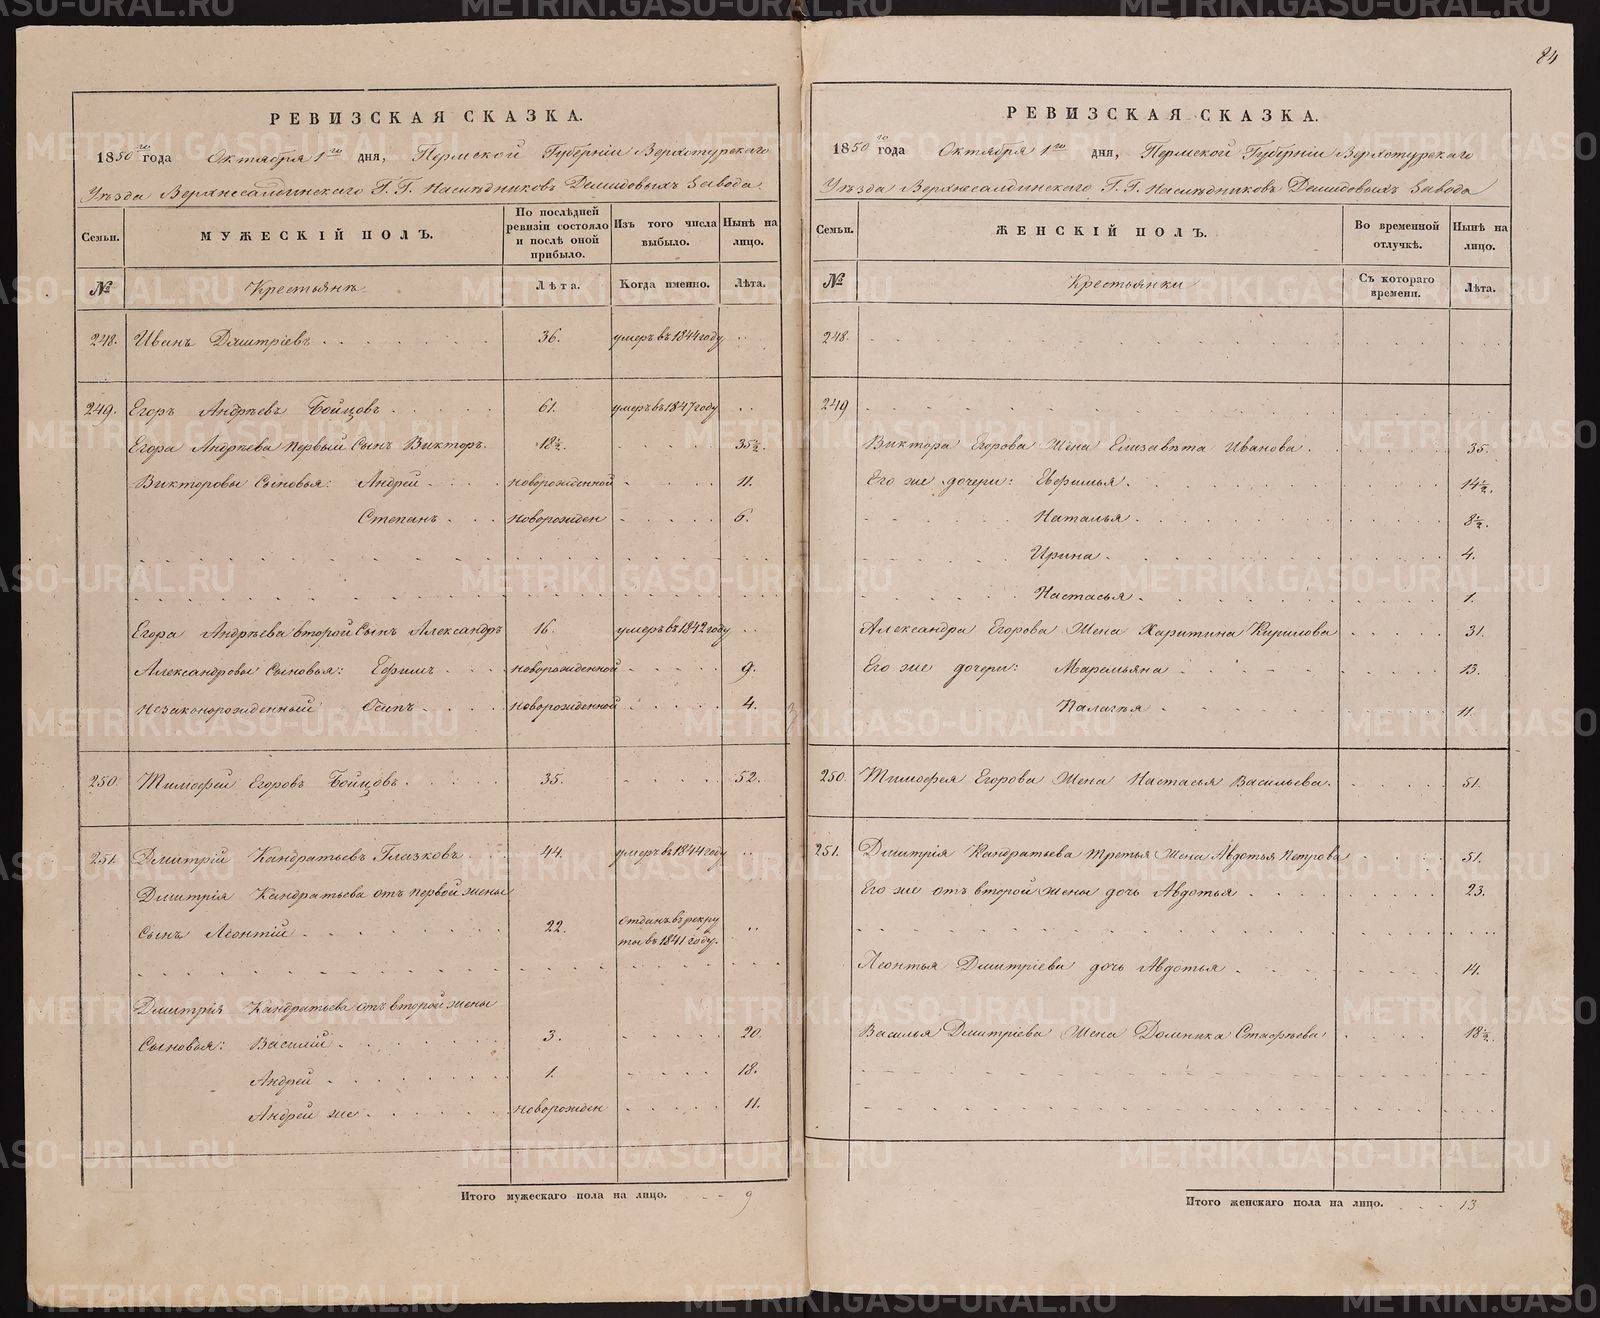 84
РЕВИЗСКАЯ СКАЗКА.
1850го года Октября 1го дня, Пермской Губерніи Верхотурскаго
Уѣзда Верхнесалдинскаго Г.Г. Наслѣдниковъ Демидовыхъ Завода
Семьи. МУЖЕСКІЙ ПОЛЪ. По послѣдней ревизіи состояло и послѣ оной прибыло. Изъ того числа выбыло. Нынѣ на лицо.
№ Крестьянъ Лѣта. Когда именно. Лѣта.
248. Иванъ Дмитріевъ 36. умеръ въ 1844 году
249. Егоръ Андрѣевъ Бойцовъ 61. умеръ въ 1847 году
Егора Андрѣева первый Сынъ Викторъ 18½. 35½.
Викторовы Сыновья: Андрей новорожденной 11.
Степанъ новорожден 6.
Егора Андрѣева второй Сынъ Александръ 16. умеръ въ 1842 году
Александровы Сыновья: Ефимъ новорожденной 9.
незаконорожденный Осипъ новорожденной 4.
250. Тимофей Егоровъ Бойцовъ 35. 52.
251. Дмитрій Кандратьевъ Глазковъ 44. умеръ въ 1844 году
Дмитрія Кандратьева отъ первой жены
Сынъ Леонтій 22. отданъ въ рекру
ты въ 1841 году.
Дмитрія Кандратьева отъ второй жены
Сыновья: Василій 3. 20.
Андрей 1. 18.
Андрей же новорожден 11.
Итого мужескаго пола на лицо. 9
РЕВИЗСКАЯ СКАЗКА.
1850го года Октября 1го дня, Пермской Губерніи Верхотурскаго
Уѣзда Верхнесалдинскаго Г.Г. Наслѣдниковъ Демидовыхъ Завода
Семьи. ЖЕНСКІЙ ПОЛЪ. Во временной отлучкѣ. Нынѣ на лицо.
№ Крестьянки Съ котораго времени. Лѣта.
248.
249
Виктора Егорова Жена Елизавѣта Иванова 35.
Его же дочери: Евфимья 14½.
Наталья 8½.
Ирина 4.
Настасья 1.
Александра Егорова Жена Харитина Кирилова 31.
Его же дочери: Маремьяна 13.
Палагѣя 11.
250. Тимофея Егорова Жена Настасья Васильева. 51.
251. Дмитрія Кандратьева третья жена Авдотья Петрова 51.
Его же отъ второй жены дочь Авдотья 23.
Леонтья Дмитріева дочь Авдотья 14.
Василья Дмитріева Жена Домника Стафѣева 18½.
Итого женскаго пола на лицо. 13
METRIKI.GASO-URAL.RU